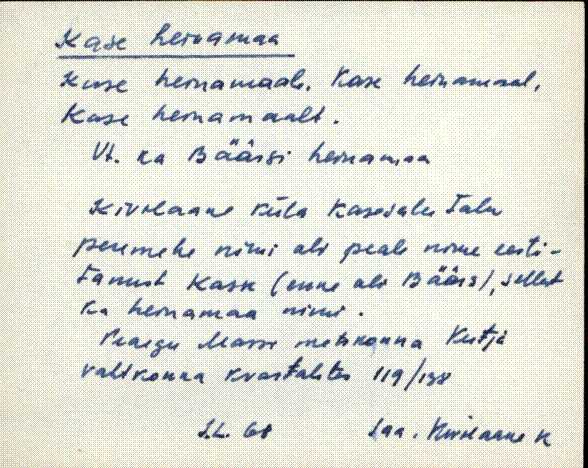 Kase heinamaa
Kase heinamaale, Kase heinamaal,
Kase heinamaalt.
Vt. ka Bäärsi heinamaa
Kivilaane küla Kasesalu talu
peremehe nimi oli peale nime eesti-
tamist Kask (enne oli Bäärs), sellest
ka heinamaa nimi.
Praegu Massi metskonna
vahtkonna kvartalites 119/138
I.L. 68 Saa. Kivilaane k